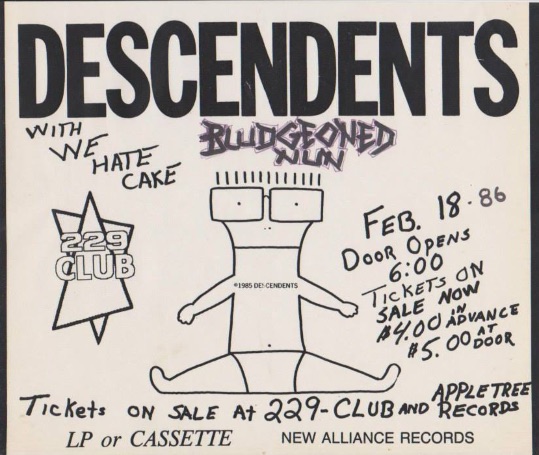 DESCENDENTS
WITH
WE
HATE
CAKE
BLUDGEONED
NUN
229
CLUB
©1985 DESCENDENTS
FEB. 18-86
DOOR OPENS
6:00
TICKETS ON
SALE NOW
$4.00 IN ADVANCE
$5.00 AT DOOR
TICKETS ON SALE AT 229-CLUB AND APPLETREE RECORDS
LP or CASSETTE NEW ALLIANCE RECORDS